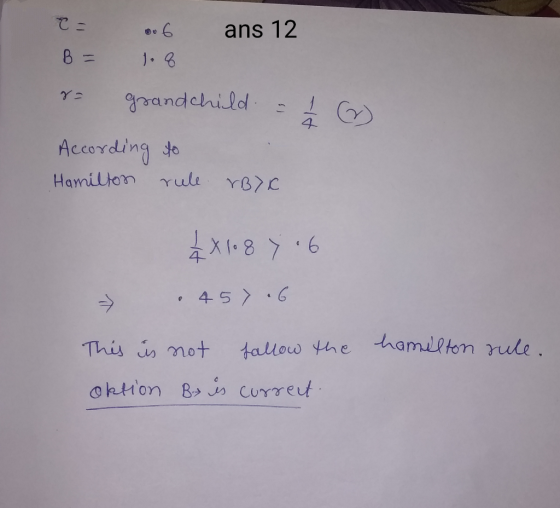 C = .6 ans 12
B = 1.8
r = grandchild. = 1/4 (r)
According to
Hamilton rule rB>C
1/4 X 1.8 > .6
⇒ .45 > .6
This is not fallow the hamilton rule.
Oktion B→ is currect.